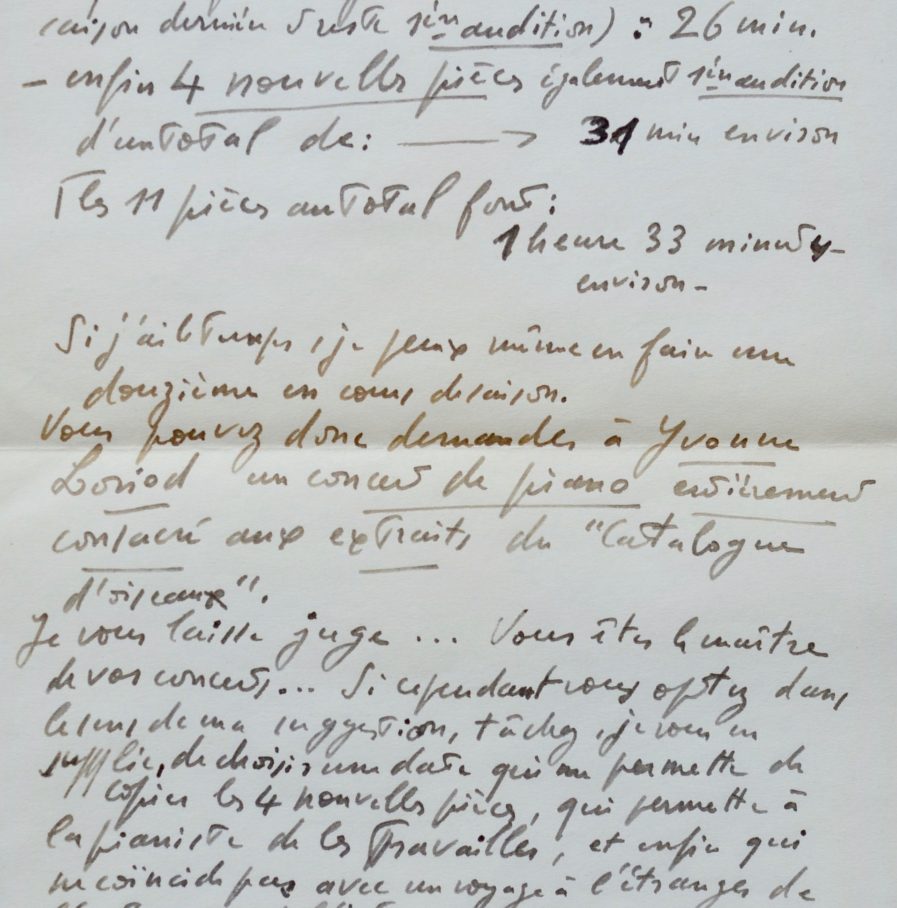 saison dernière reste 1ère audition) : 26 min.
– enfin 4 nouvelles pièces également 1ère audition
d'un total de : ⟶ 31 min environ
Tles 11 pièces au total font :
1 heure 33 minutes –
environ –
Si j'ai le temps, je peux même en faire une
douzième en cours de saison.
Vous pouvez donc demander à Yvonne
Loriod un concert de piano entièrement
consacré aux extraits du "Catalogue
d'oiseaux".
Je vous laisse juge ... Vous êtes le maître
de vos concerts... Si cependant vous optez dans
le sens de ma suggestion, tâchez, je vous en
supplie, de choisir une date qui me permette de
copier les 4 nouvelles pièces, qui permette à
la pianiste de les travailler, et enfin qui
ne coïncide pas avec un voyage à l'étranger de